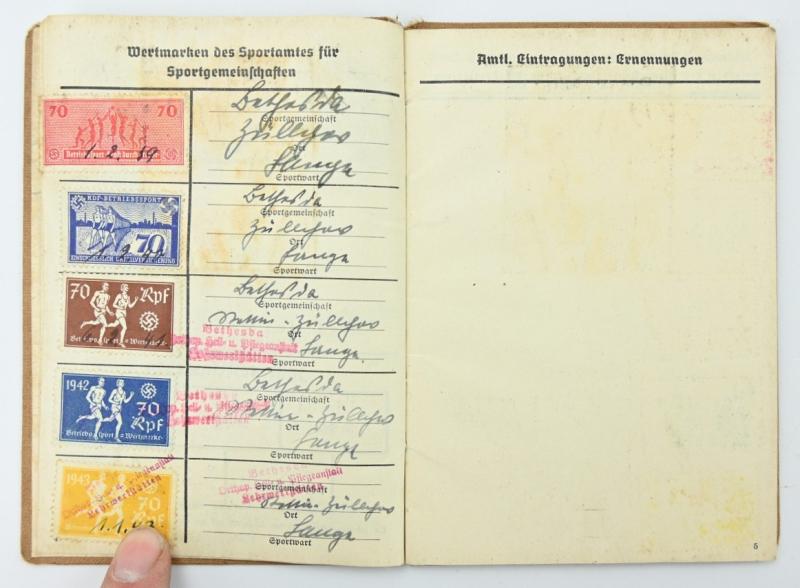 Wertmarken des Sportamtes für
Sportgemeinschaften
70 70
1.2.39
Bethesda
Sportgemeinschaft
Züllchow
Ort
Lange
Sportwart
KDF-BETRIEBSSPORT
70
Bethesda
Sportgemeinschaft
Züllchow
Ort
Lange
Sportwart
70 Rpf
Betriebssport=Wertmarke
Bethesda
Sportgemeinschaft
Stettin-Züllchow
Ort
Lange
Sportwart
Bethesda
Orthop. Heil- u. Pflegeanstalt
Lehrwerkstätten
1942
70
Rpf
Betriebssport=Wertmarke
Bethesda
Sportgemeinschaft
Stettin-Züllchow
Ort
Lange
Sportwart
Bethesda
Orthop. Heil- u. Pflegeanstalt
Lehrwerkstätten
1943
70
Rpf
1.1.43
Lehrwerkstätten
Bethesda
Orthop. Heil- u. Pflegeanstalt
Lehrwerkstätten
Sportgemeinschaft
Stettin-Züllchow
Ort
Lange
Sportwart
Amtl. Eintragungen: Ernennungen
5